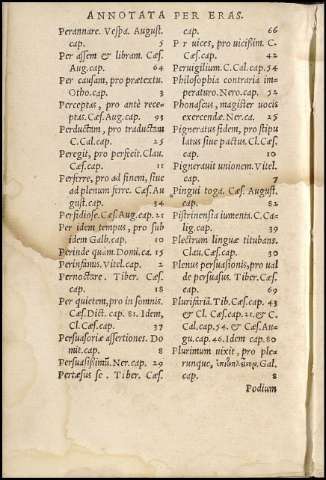 ANNOTATA PER ERAS.
Perannare. Vespa. August.
cap. 5
Per assem & libram. Cæs.
Aug.cap. 64
Per causam, pro prætextu.
Otho.cap. 3
Perceptas, pro ante rece-
ptas. Cæs. Aug.cap. 93
Perductum, pro traductum
C. Cal.cap. 25
Peregit, pro perfecit. Clau.
Cæs.cap. 11
Perferre, pro ad finem, siue
ad plenum ferre. Cæs. Au
gust.cap. 34
Perfidiose. Cæs. Aug.cap. 21
Per idem tempus, pro sub
idem Galb.cap. 10
Perinde quam. Domi.ca. 15
Perinfanus. Vitel.cap. 2
Pernoctare. Tiber. Cæs.
cap. 18
Per quietem, pro in somnis.
Cæs. Dict. cap. 81. Idem,
Cl. Cæs.cap. 37
Persuasoriæ assertiones. Do
mit.cap. 8
Persuasissimũ. Ner.cap. 29
Pertæsus sc. Tiber. Cæs.
cap. 66
Per uices, pro uicissim. C.
Cæs.cap. 42
Peruigilium. C. Cal.cap. 54
Philosophia contraria im-
peraturo. Nero.cap. 52
Phonascus, magister uocis
exercendæ. Ner.ca. 25
Pigneratus fidem, pro stipu
latus siue pactus. Cl. Cæs.
cap.
Pignerauit unionem. Vitel.
cap. 7
Pingui toga. Cæs. August.
cap. 82
Pistrinensia iumenta. C. Ca-
lig.cap. 39
Plectrum linguæ titubans.
Clau. Cæs.cap. 30
Plenus persuasionis, pro ual
de persuasus. Tiber. Cæs.
cap. 69
Plurifariã. Tib. Cæs.cap. 43
& Cl. Cæs.cap. 21. & C.
Cal.cap. 54. & Cæs. Au-
gu.cap. 46. Idem cap. 80
Plurimum uixit, pro ple-
runque, Gal.
cap. 8
Podium